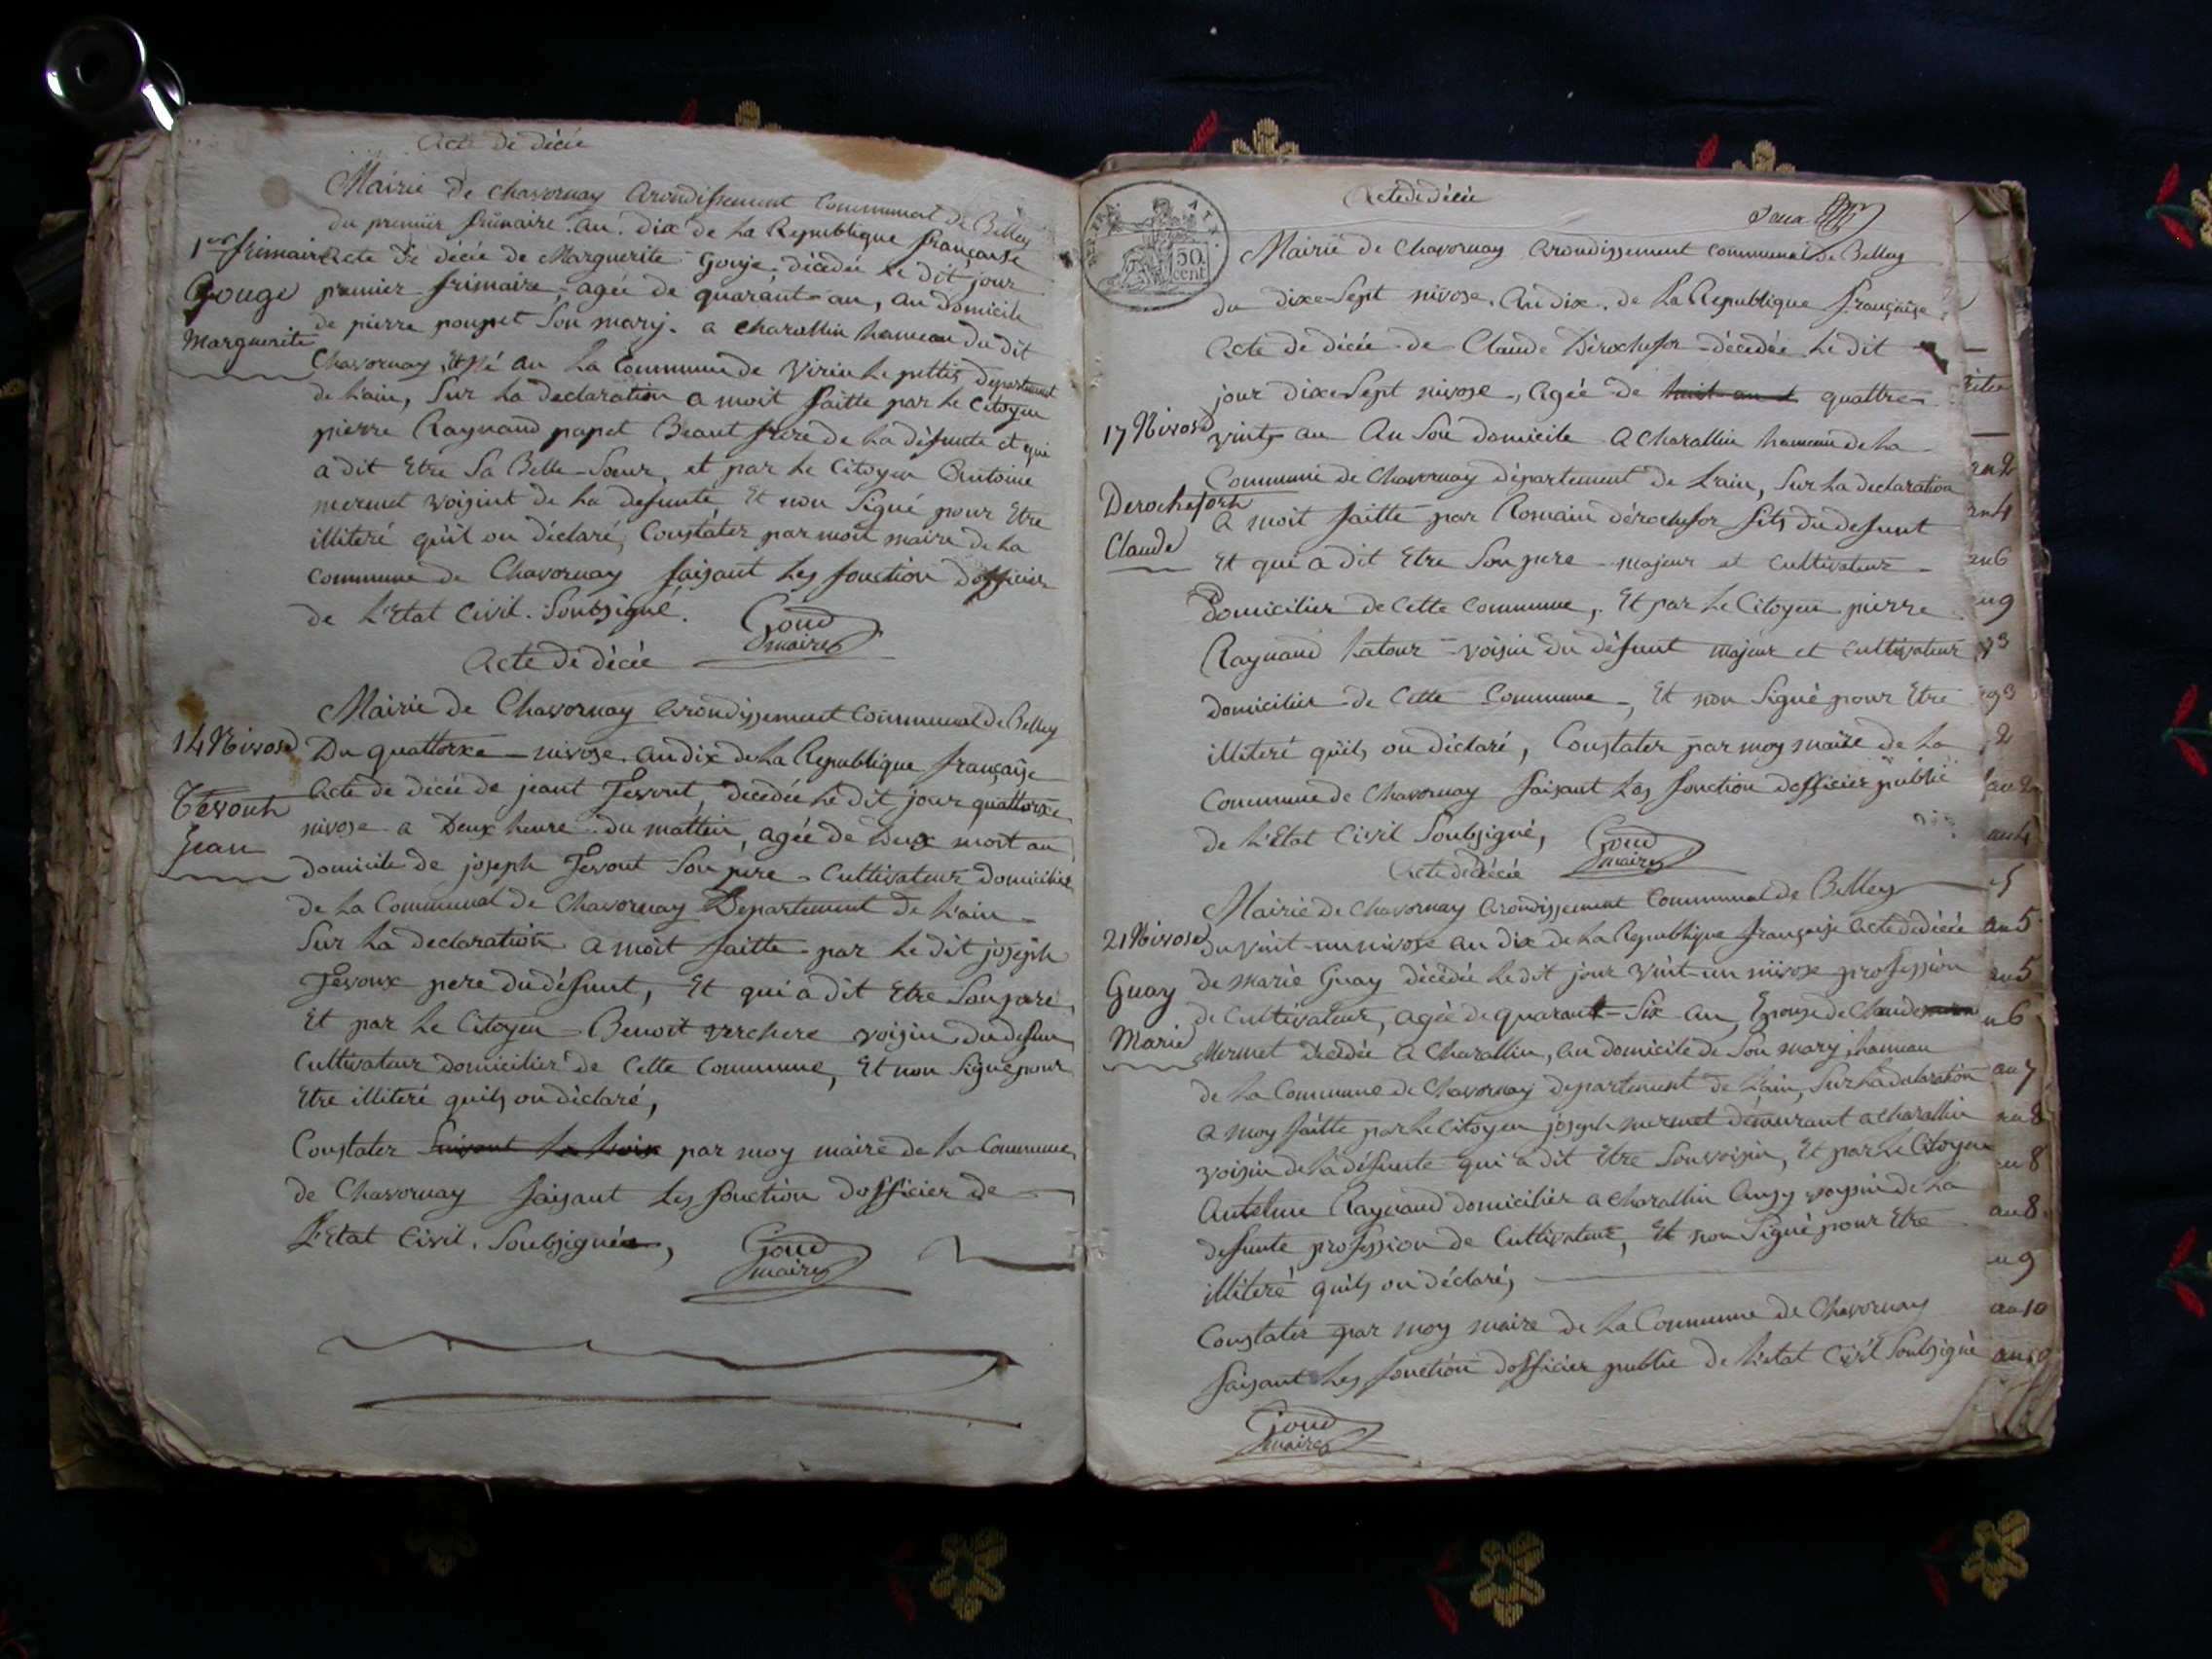 Acte de décée
Mairie de chavornay Arondissement Communal de Belley
du premier frimaire. an. dix de La Republique française
1er frimaire
Acte de décée de Marguerite Gouje. décédée Le dit jour
Gouge
premier frimaire, agée de quarant an, au Domicile
Marguerite
de pierre poupet Son mary. a charallin hameau du dit
Chavornay, Et Né au La Commune de Virieu Le pettis, Departement
de Lain, Sur La declaration a moit faitte par Le Citoyen
pierre Raynand papet Beaut frere de La défunte et qui
a dit Etre Sa Belle-Soeur, et par Le Citoyen Antoine
mermet voisint de La defunte, Et non Signé pour Etre
illiteré quil on déclaré, Constater par moit maire de La
Commune de Chavornay faisant Les fonction dofficier
de L'Etat Civil. Soubsigné.
Goud
maire
Acte de décée
Mairie de Chavornay Arondissement Communal de Belley
14 Nivose
Du quattorze nivose. an dix de La Republique françaije
Tévouth
Jean
Acte de décée de jeant Tevout, décédée Le dit jour quattorze
nivose a Deux heure du mattin, agée de Deux moit au
domicile de joseph Tevout Son pere Cultivateur domicilier
de La Communal de Chavornay Departement de Lain
Sur La declaration a moit faitte par Le dit joseph
Tevoux pere du défunt, Et qui a dit Etre Son pere,
Et par Le Citoyen Benoit verchere voisin du defun
Cultivateur domicilier de Cette Commune, Et non Signé pour
Etre illiteré quils on déclaré,
Constater Suivant La Loix par moy maire de La Commune
de Chavornay faisant Les fonction dofficier de
L'Etat Civil. Soubsigné,
Goud
maire
REP. FRA. 50 cent
Acte de décée
Deux
Mairie de Chavornay Arondissement communal de Belley
du dixe-Sept nivose. An dix. de La Republique française,
Acte de décée de Claude Dérochefor décédée Le dit
jour dixe-Sept nivose, Agée de huit an quattre
17 Nivose
vints an Au Son domicile a Charallin hameau de La
Commune de Chavornay département de Lain, Sur La declaration
Derocheforh
Claude
a moit faitte par Romain dérochefor fils du defunt
Et qui a dit Etre Son pere majeur et Cultivateur
Domicilier de Cette Commune, Et par Le Citoyen pierre
Raynand Latour voisin du défunt majeur et Cultivateur
domicilier de Cette Commune, Et non Signé pour Etre
illiteré quils on déclaré, Constater par moy maire de La
Commune de Chavornay faisant Les fonction dofficier public
de L'Etat Civil Soubsigné,
Goud
maire
Acte de décée
Mairie de Chavornay Arondissement Communal de Belley
21 Nivose
du vint-un nivose an dix de La Republique françaije Acte de décée
Guay
de Marie Guay décédée Le dit jour vint-un nivose profession
de Cultivateur, agée de quarant-Six an, Epouse de Claude
Marie
Mermet décédée a Charallin, au domicile de Son mary hameau
de La Commune de Chavornay departement de Lain, Sur La declaration
a moy faitte par Le Citoyen joseph mermet demurant a charallin
voisin de La défunte qui a dit Etre Son voisin, Et par Le Citoyen
Antelme Raynand domicilier a Charallin Ausy voysin de La
defunte profession de Cultivateur, Et non Signé pour Etre
illiteré quils on déclaré,
Constater par moy maire de La Commune de Chavornay
faisant Les fonction dofficier public de L'etat Civil Soubsigné
Goud
maire
an 2
an 4
an 6
an 9
an 2
an 4
an 5
an 5
an 6
an 7
an 8
an 8
an 8
an 9
an 10